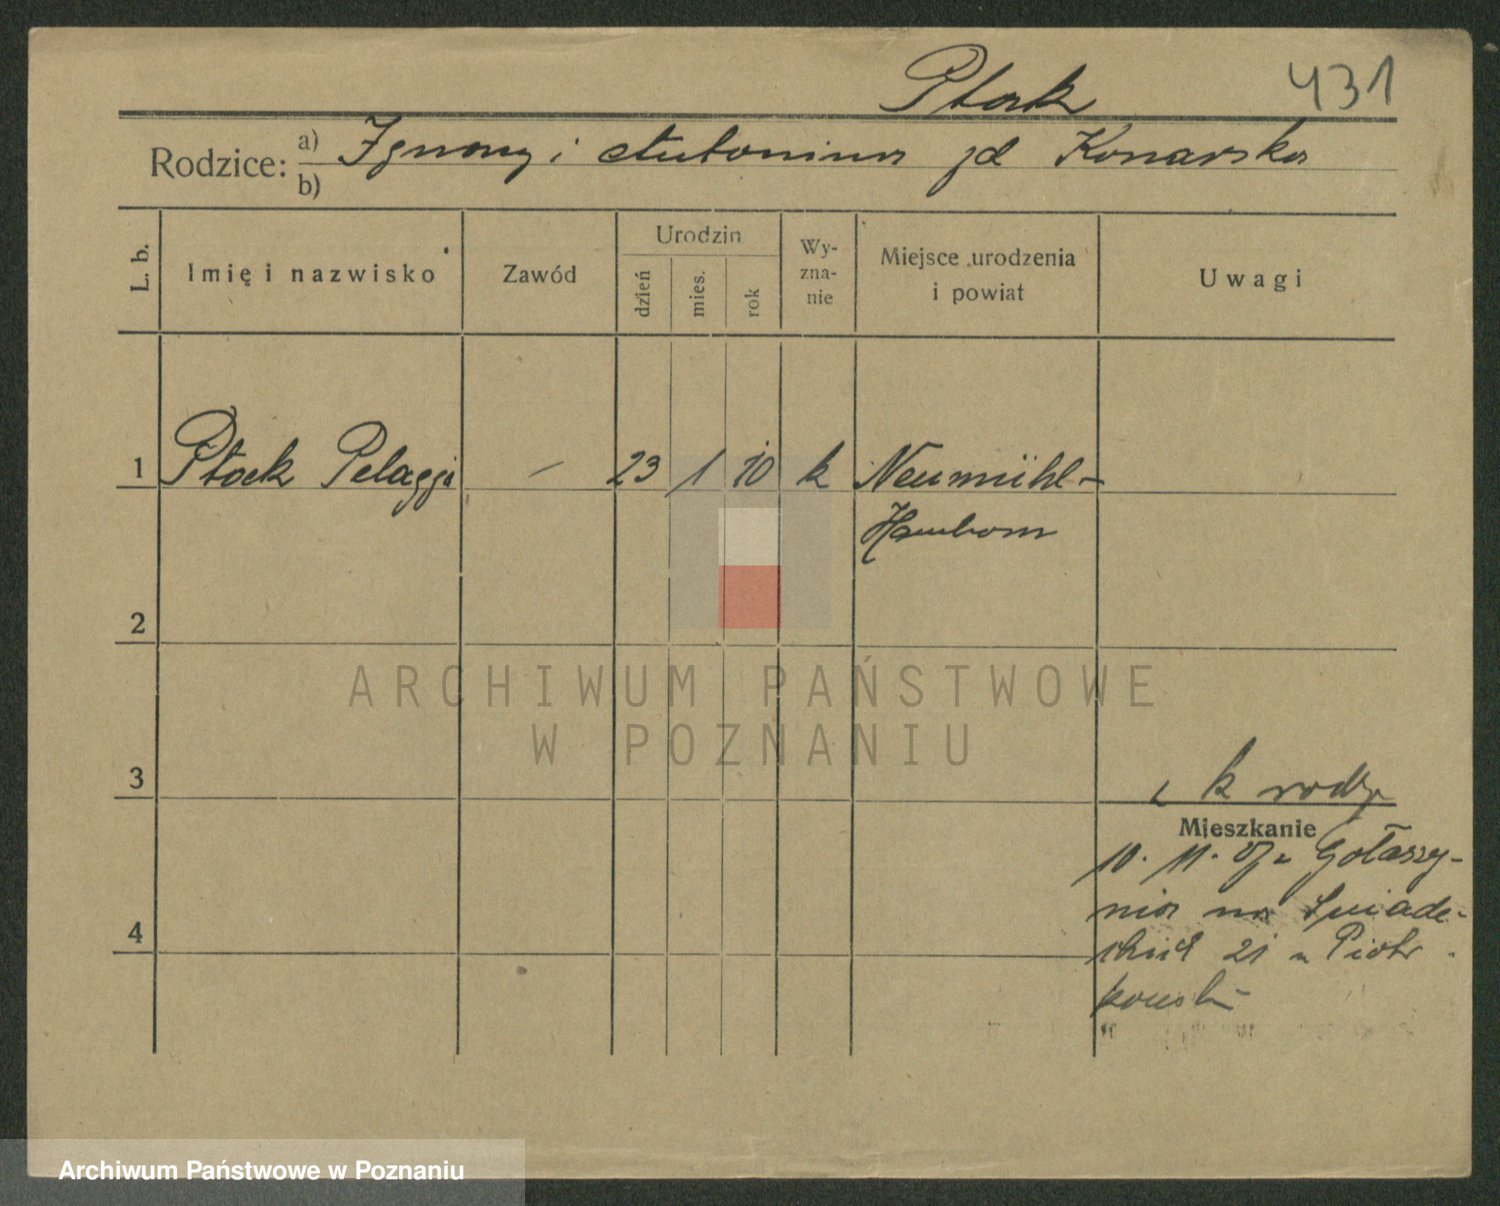 Ptak 431
Rodzice: a) Ignacy i Antonina zd Konarska
b)
L. b. Imię i nazwisko Zawód Urodzin dzień mies. rok Wyznanie Miejsce urodzenia i powiat Uwagi
1 Ptock Pelagja — 23 1 10 k Neumühl-
Hamborn
2
3
k rodz.
Mieszkanie
10. 11. z Gołaszy-
nia na Śniade-
ckich 21 u Piotr
kowski
4
ARCHIWUM PAŃSTWOWE
W POZNANIU
Archiwum Państwowe w Poznaniu